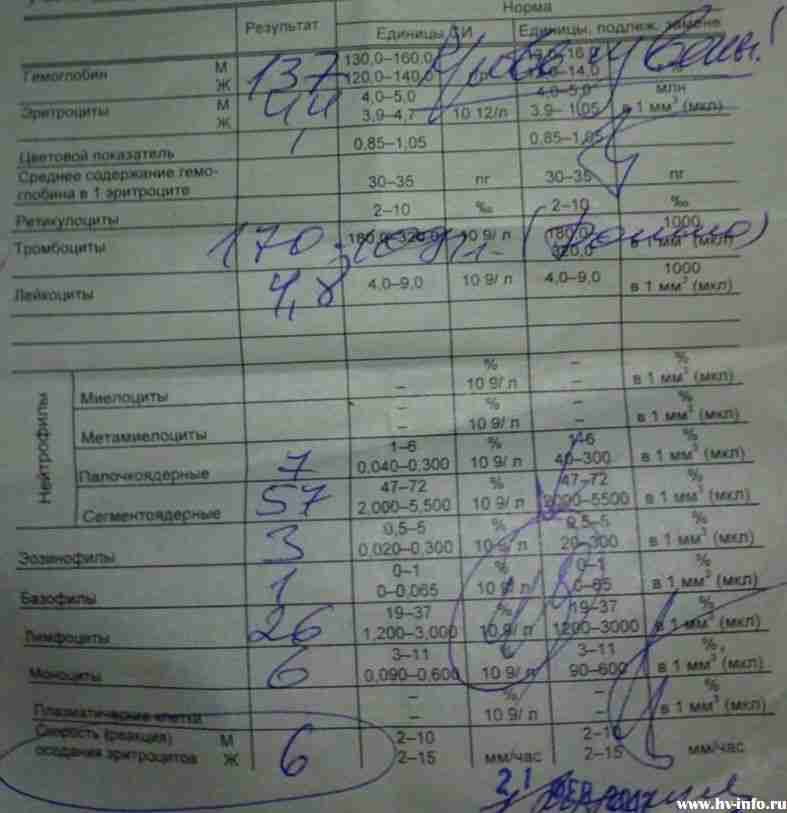 Результат
Норма
Единицы СИ
Единицы, подлеж. замене
Гемоглобин М Ж 137 130,0–160,0 120,0–140,0
Эритроциты М Ж 4,0–5,0 3,9–4,7 10 12/л 4,0–5,0 млн в 1 мм³ (мкл)
Цветовой показатель 1 0,85–1,05 0,85–1,05
Среднее содержание гемо-
глобина в 1 эритроците 30–35 пг 30–35 пг
Ретикулоциты 2–10 ‰ 2–10 ‰
Тромбоциты 170 180,0–320,0 10 9/ л 180,0 320,0 1000 в 1 мм³ (мкл)
Лейкоциты 4,8 4,0–9,0 10 9/ л 4,0–9,0 1000 в 1 мм³ (мкл)
Нейтрофилы
Миелоциты – – % 10 9/ л – – % в 1 мм³ (мкл)
Метамиелоциты – – % 10 9/ л – – % в 1 мм³ (мкл)
Палочкоядерные 7 1–6 0,040–0,300 % 10 9/ л 1–6 40–300 % в 1 мм³ (мкл)
Сегментоядерные 57 47–72 2,000–5,500 % 10 9/ л 47–72 2000–5500 % в 1 мм³ (мкл)
Эозинофилы 3 0,5–5 0,020–0,300 % 10 9/ л 0,5–5 20–300 % в 1 мм³ (мкл)
Базофилы 1 0–1 0–0,065 % 10 9/ л 0–1 0–65 % в 1 мм³ (мкл)
Лимфоциты 26 19–37 1,200–3,000 % 10 9/ л 19–37 1200–3000 % в 1 мм³ (мкл)
Моноциты 6 3–11 0,090–0,600 % 10 9/ л 3–11 90–600 % в 1 мм³ (мкл)
Плазматические клетки – – % 10 9/ л – – % в 1 мм³ (мкл)
Скорость (реакция)
оседания эритроцитов М Ж 6 2–10 2–15 мм/час 2–10 2–15 мм/час
www.hv-info.ru